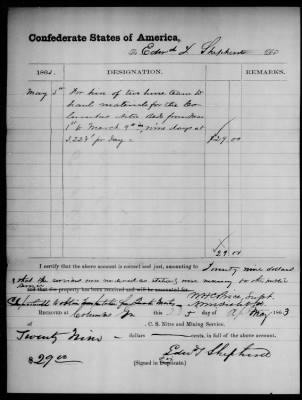 Confederate States of America,
To Edwd T. Shepherd Dr.
186 . DESIGNATION. REMARKS.
May 5th For hire of two horse team to
haul materials for the Co-
lumbus Nitre Beds from Mar
1st to March 9th inc, nine days at
3.22 2/9 per day = $29.00
$29.00
I certify that the above account is correct and just, amounting to Twenty nine dollars
that the services were rendered as stated, were necessary for the public
service
and that the property has been received and will be accounted for.
W H C Price, Supt.
RECEIVED AT Columbus Ga this 5 day of May 1863
of , C. S. Nitre and Mining Service.
Twenty Nine dollars cents, in full of the above account.
$29.00 Edwd T Shepherd
(Signed in Duplicate.)